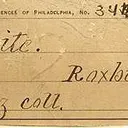 ENCES OF PHILADELPHIA, NO. 34
ite.
Roxb
coll.